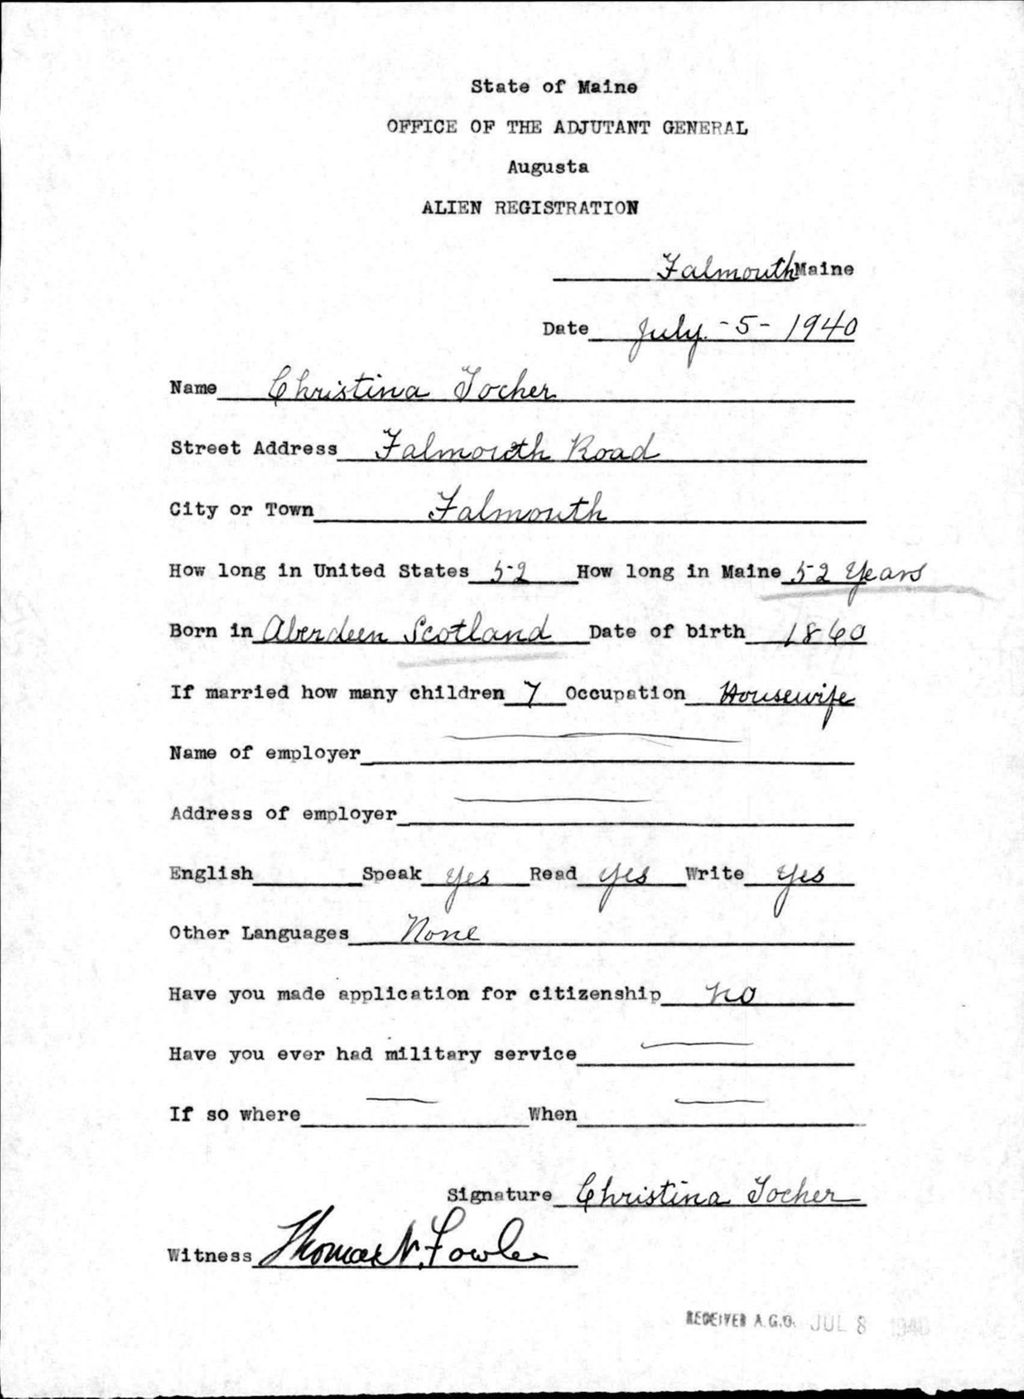 State of Maine
OFFICE OF THE ADJUTANT GENERAL
Augusta
ALIEN REGISTRATION
Falmouth Maine
Date July. -5- 1940
Name Christina Tocher
Street Address Falmouth Road
City or Town Falmouth
How long in United States 52 How long in Maine 52 Years
Born in Aberdeen Scotland Date of birth 1860
If married how many children 7 Occupation Housewife
Name of employer
Address of employer
English Speak Yes Read Yes Write Yes
Other Languages None
Have you made application for citizenship no
Have you ever had military service
If so where When
Signature Christina Tocher
Witness Thomas N. Fowler
RECEIVED A.G.O. JUL 8 1940